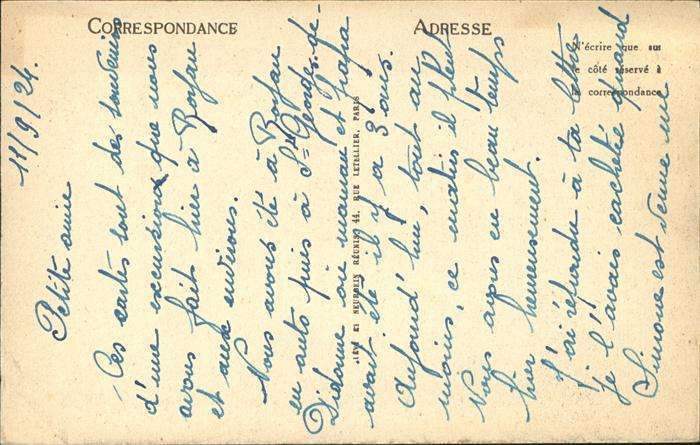 CORRESPONDANCE
ADRESSE
N'écrire que sur
le côté réservé à
la correspondance
LÉVY ET NEURDEIN RÉUNIS, 44, RUE LETELLIER, PARIS
11/9/24.
Petite amie
Ces cartes sont des souvenirs
d'une excursion que nous
avons faite hier à Royan
et aux environs.
Nous avons été à Royan
en auto puis à St Georges-de-
Didonne où maman et Papa
avait été il y a 3 ans.
Aujourd'hui, tout au
moins, ce matin il pleut
Nous avons eu beau temps
hier heureusement.
J'ai répondu à ta lettre
je l'avais cacheté quand
Simone est venue me